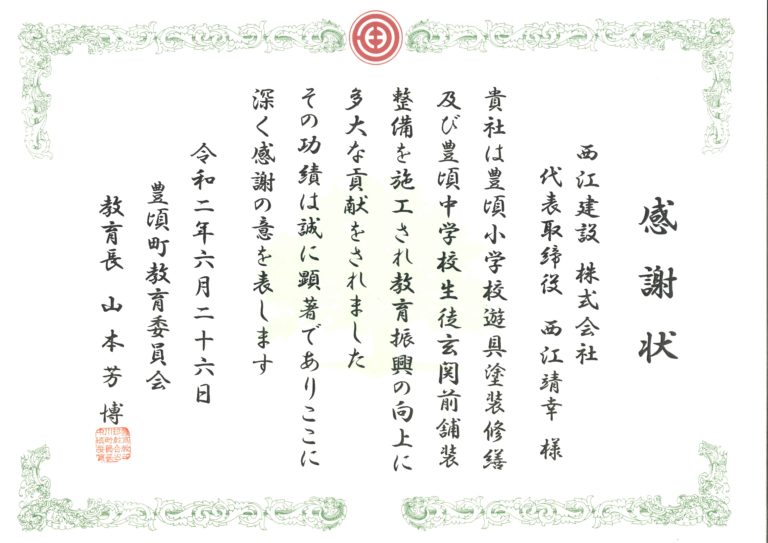 感謝状
西江建設 株式会社
代表取締役 西江靖幸 様
貴社は豊頃小学校遊具塗装修繕
及び豊頃中学校生徒玄関前舗装
整備を施工され教育振興の向上に
多大な貢献をされました
その功績は誠に顕著でありここに
深く感謝の意を表します
令和二年六月二十六日
豊頃町教育委員会
教育長 山本芳博